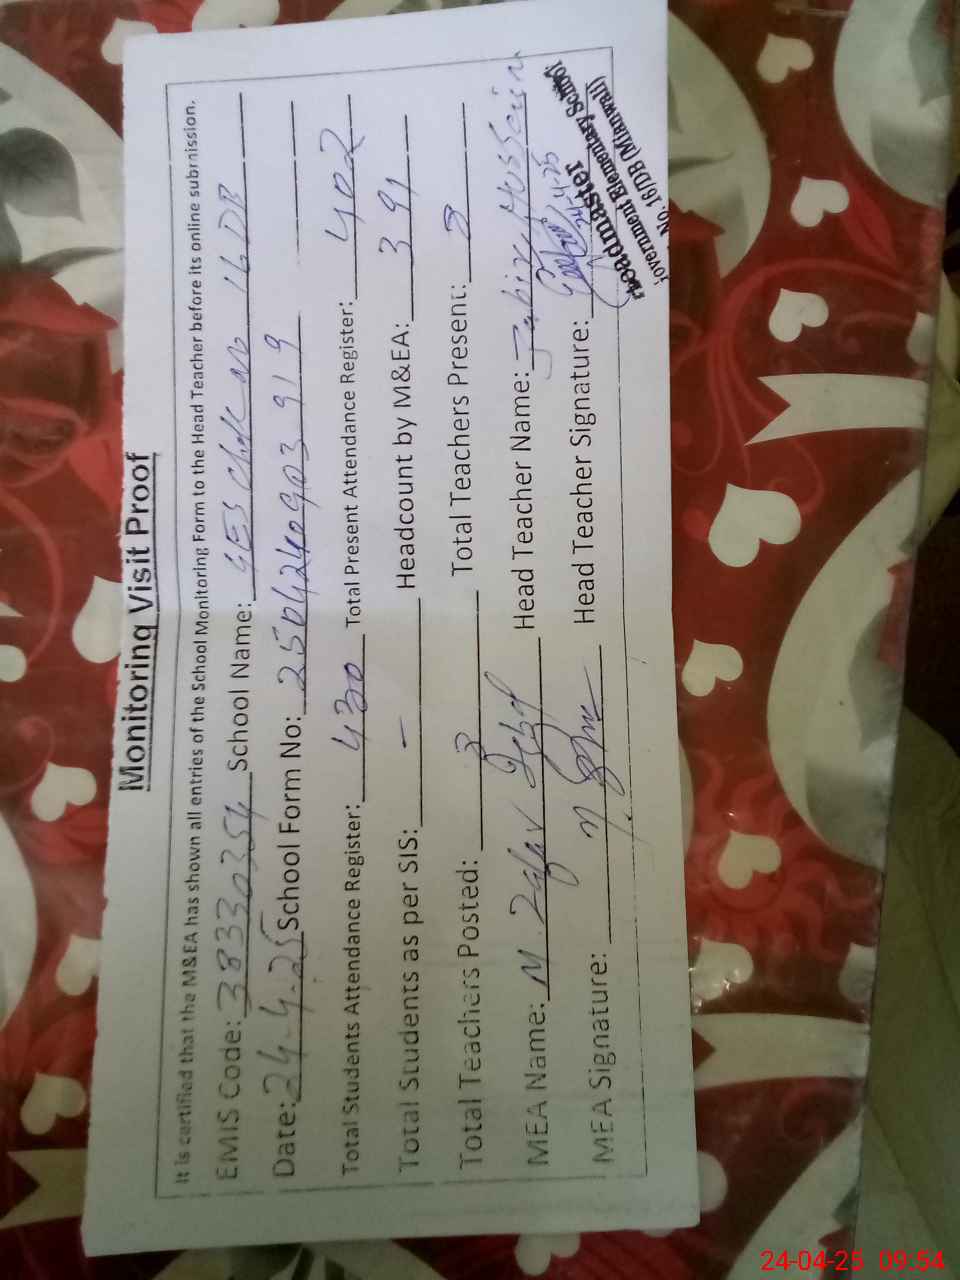 Monitoring Visit Proof
It is certified that the M&EA has shown all entries of the School Monitoring Form to the Head Teacher before its online submission.
EMIS Code: 38330354 School Name: GES Chak No 16 DB
Date: 24-4-25 School Form No: 2504240903919
Total Students Attendance Register: 430 Total Present Attendance Register: 402
Total Students as per SIS: - Headcount by M&EA: 391
Total Teachers Posted: Total Teachers Present:
MEA Name: M. Zafar Iqbal Head Teacher Name: Hussain
MEA Signature: Head Teacher Signature:
24-4-25
Headmaster
Government Elementary School
No. 16/DB (Mianwali)
24-04-25 09:54